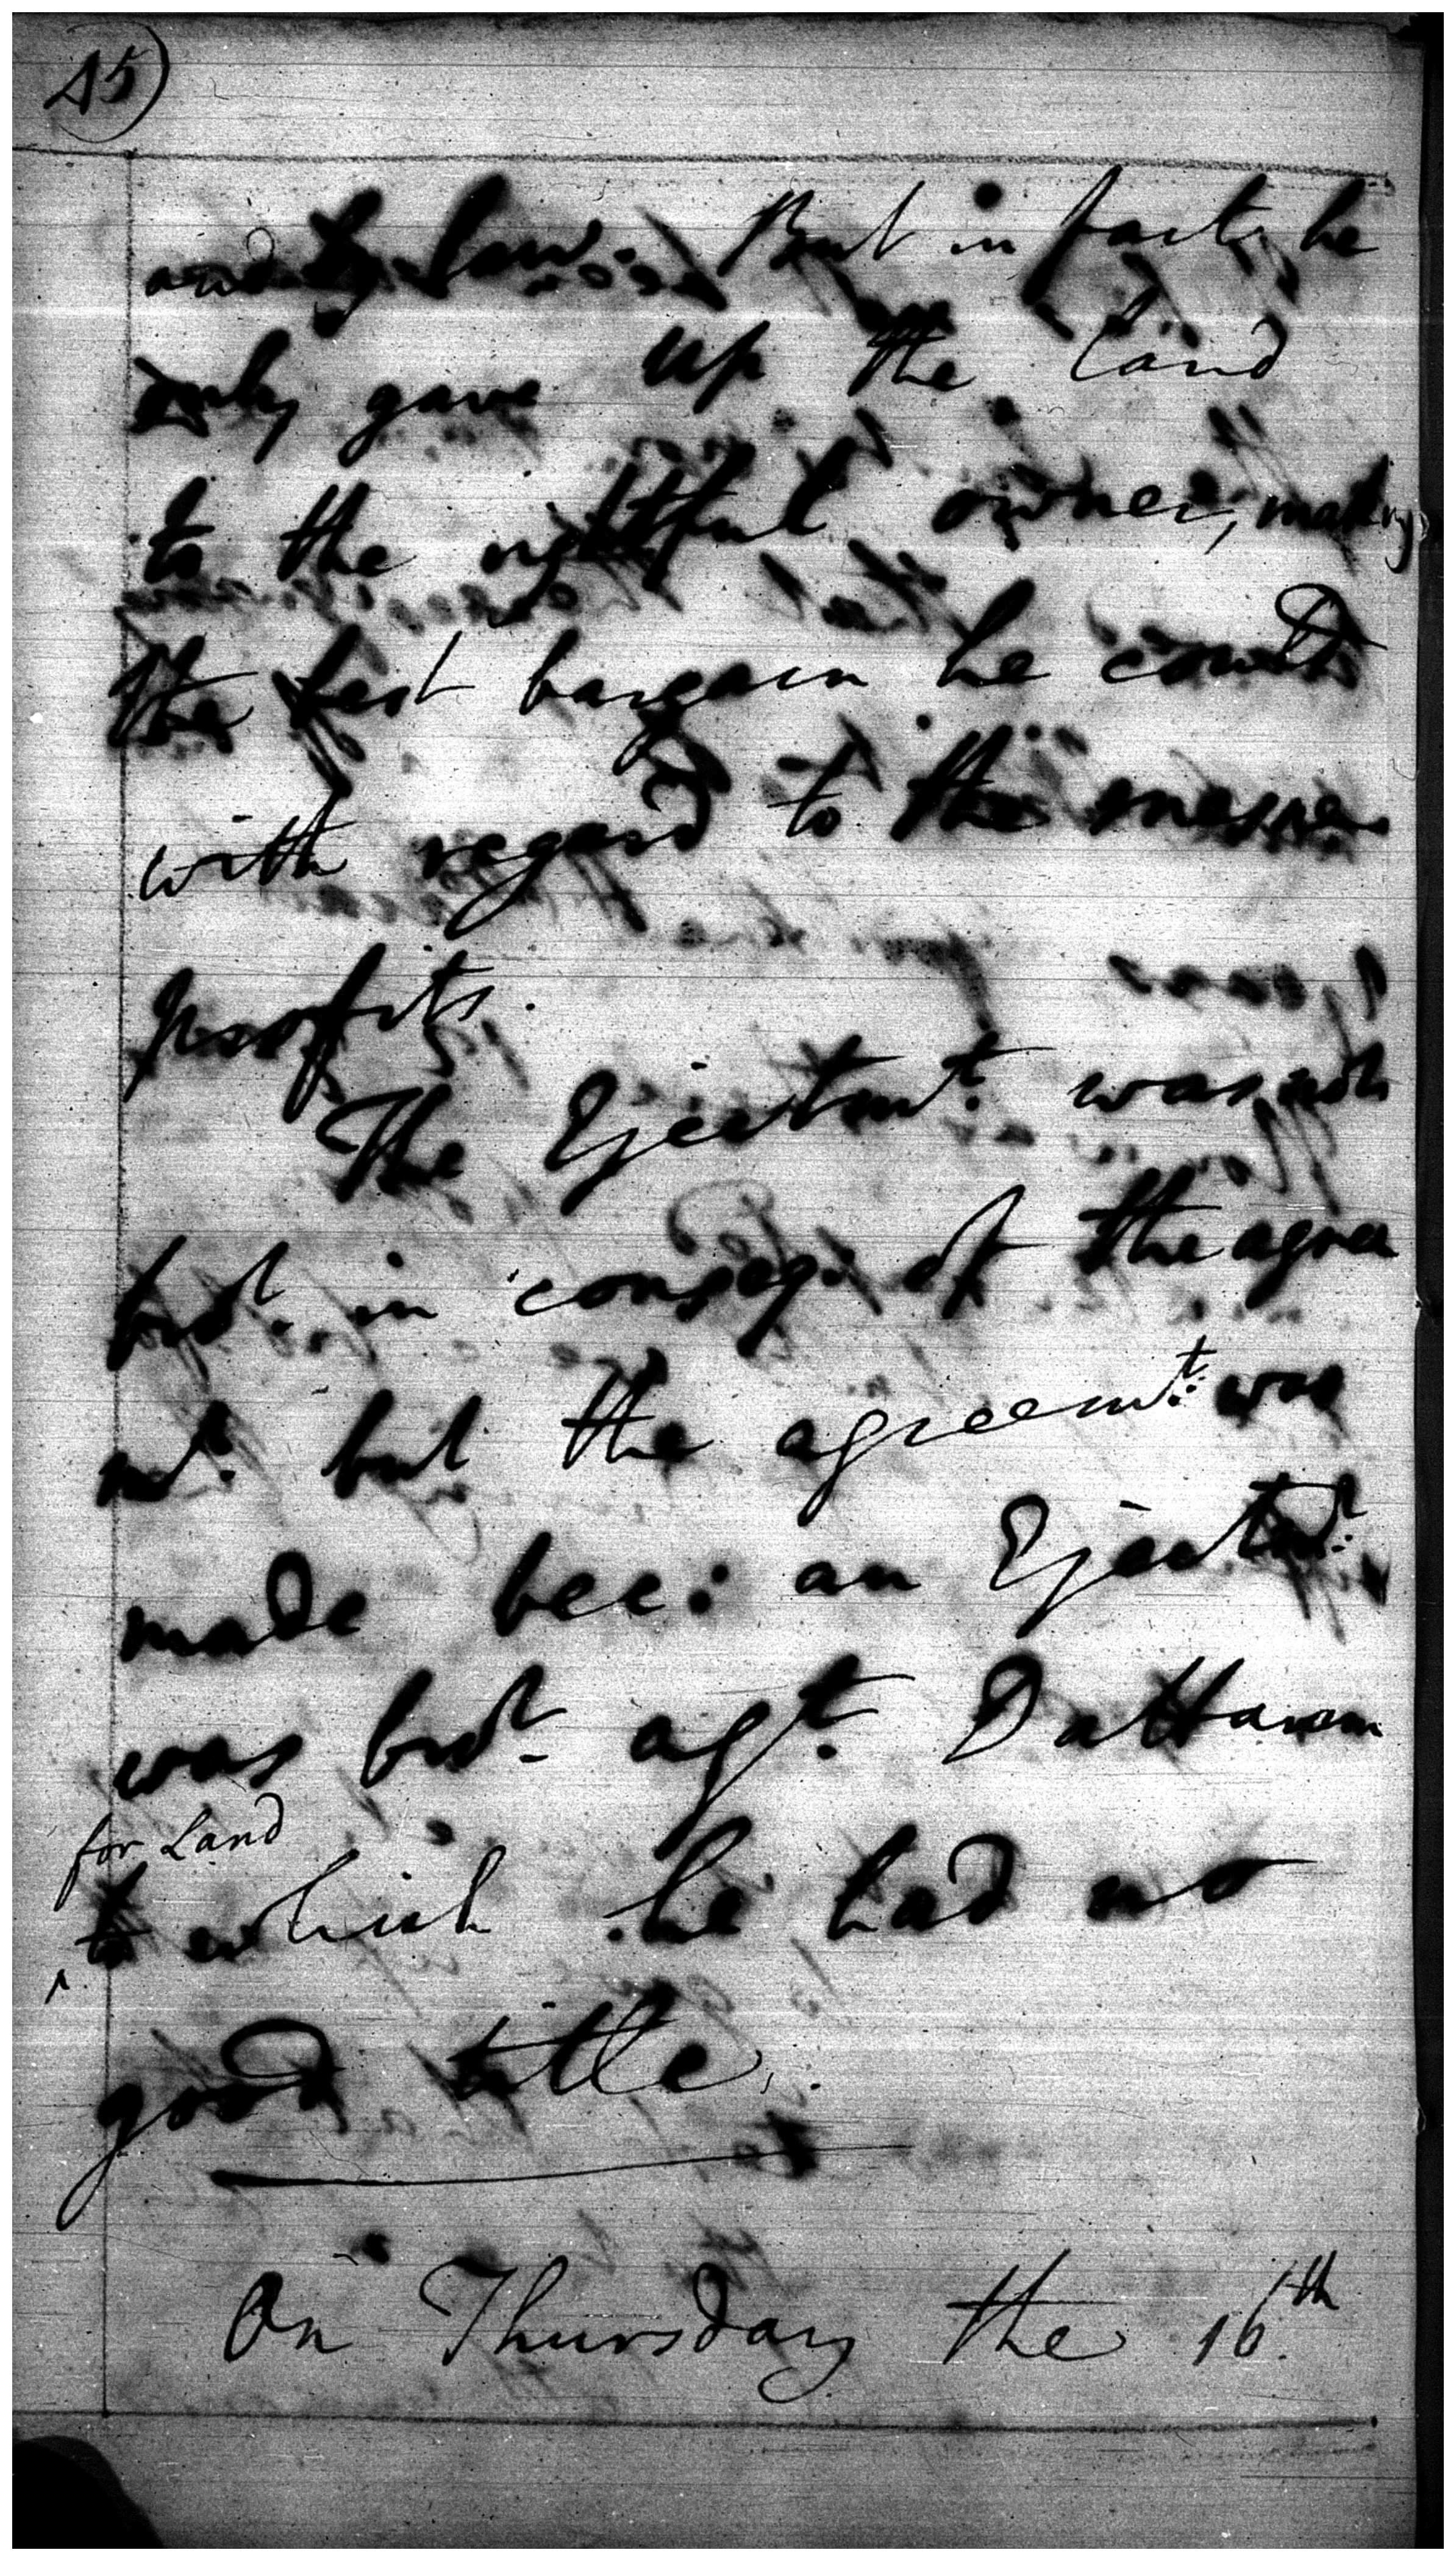 45)
and by law. But in fact, he
only gave up the land
to the rightful owner, making
the best bargain he could
with regard to the mesne
profits.
The Ejectmt. was not
brot. in conseq: of the agree
mt. but the agreemt. was
made bec: an Ejectmt.
was brot. agt. Dattaram
for Land
^ to which he had no
good title.
On Thursday the 16th.